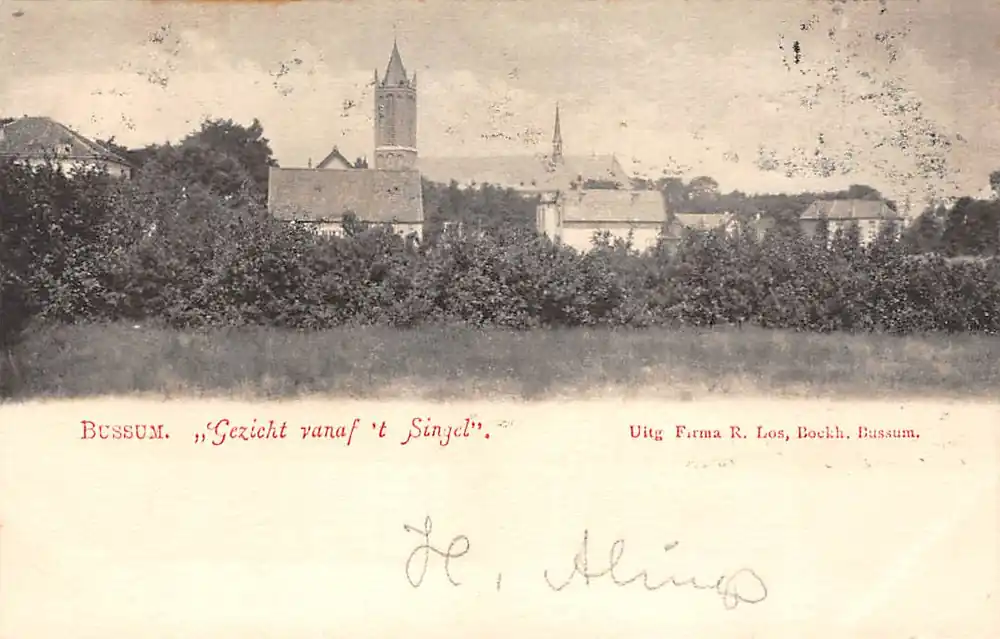 BUSSUM. „Gezicht vanaf 't Singel”. Uitg Firma R. Los, Boekh. Bussum.
H. Aling